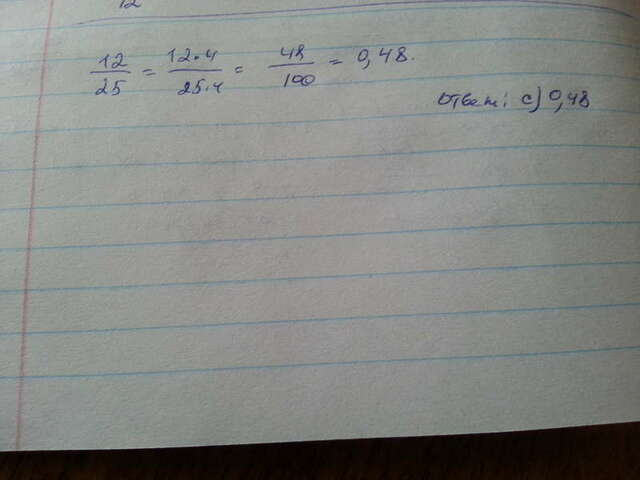 12
12/25 = 12·4/25·4 = 48/100 = 0,48.
Ответ: с) 0,48